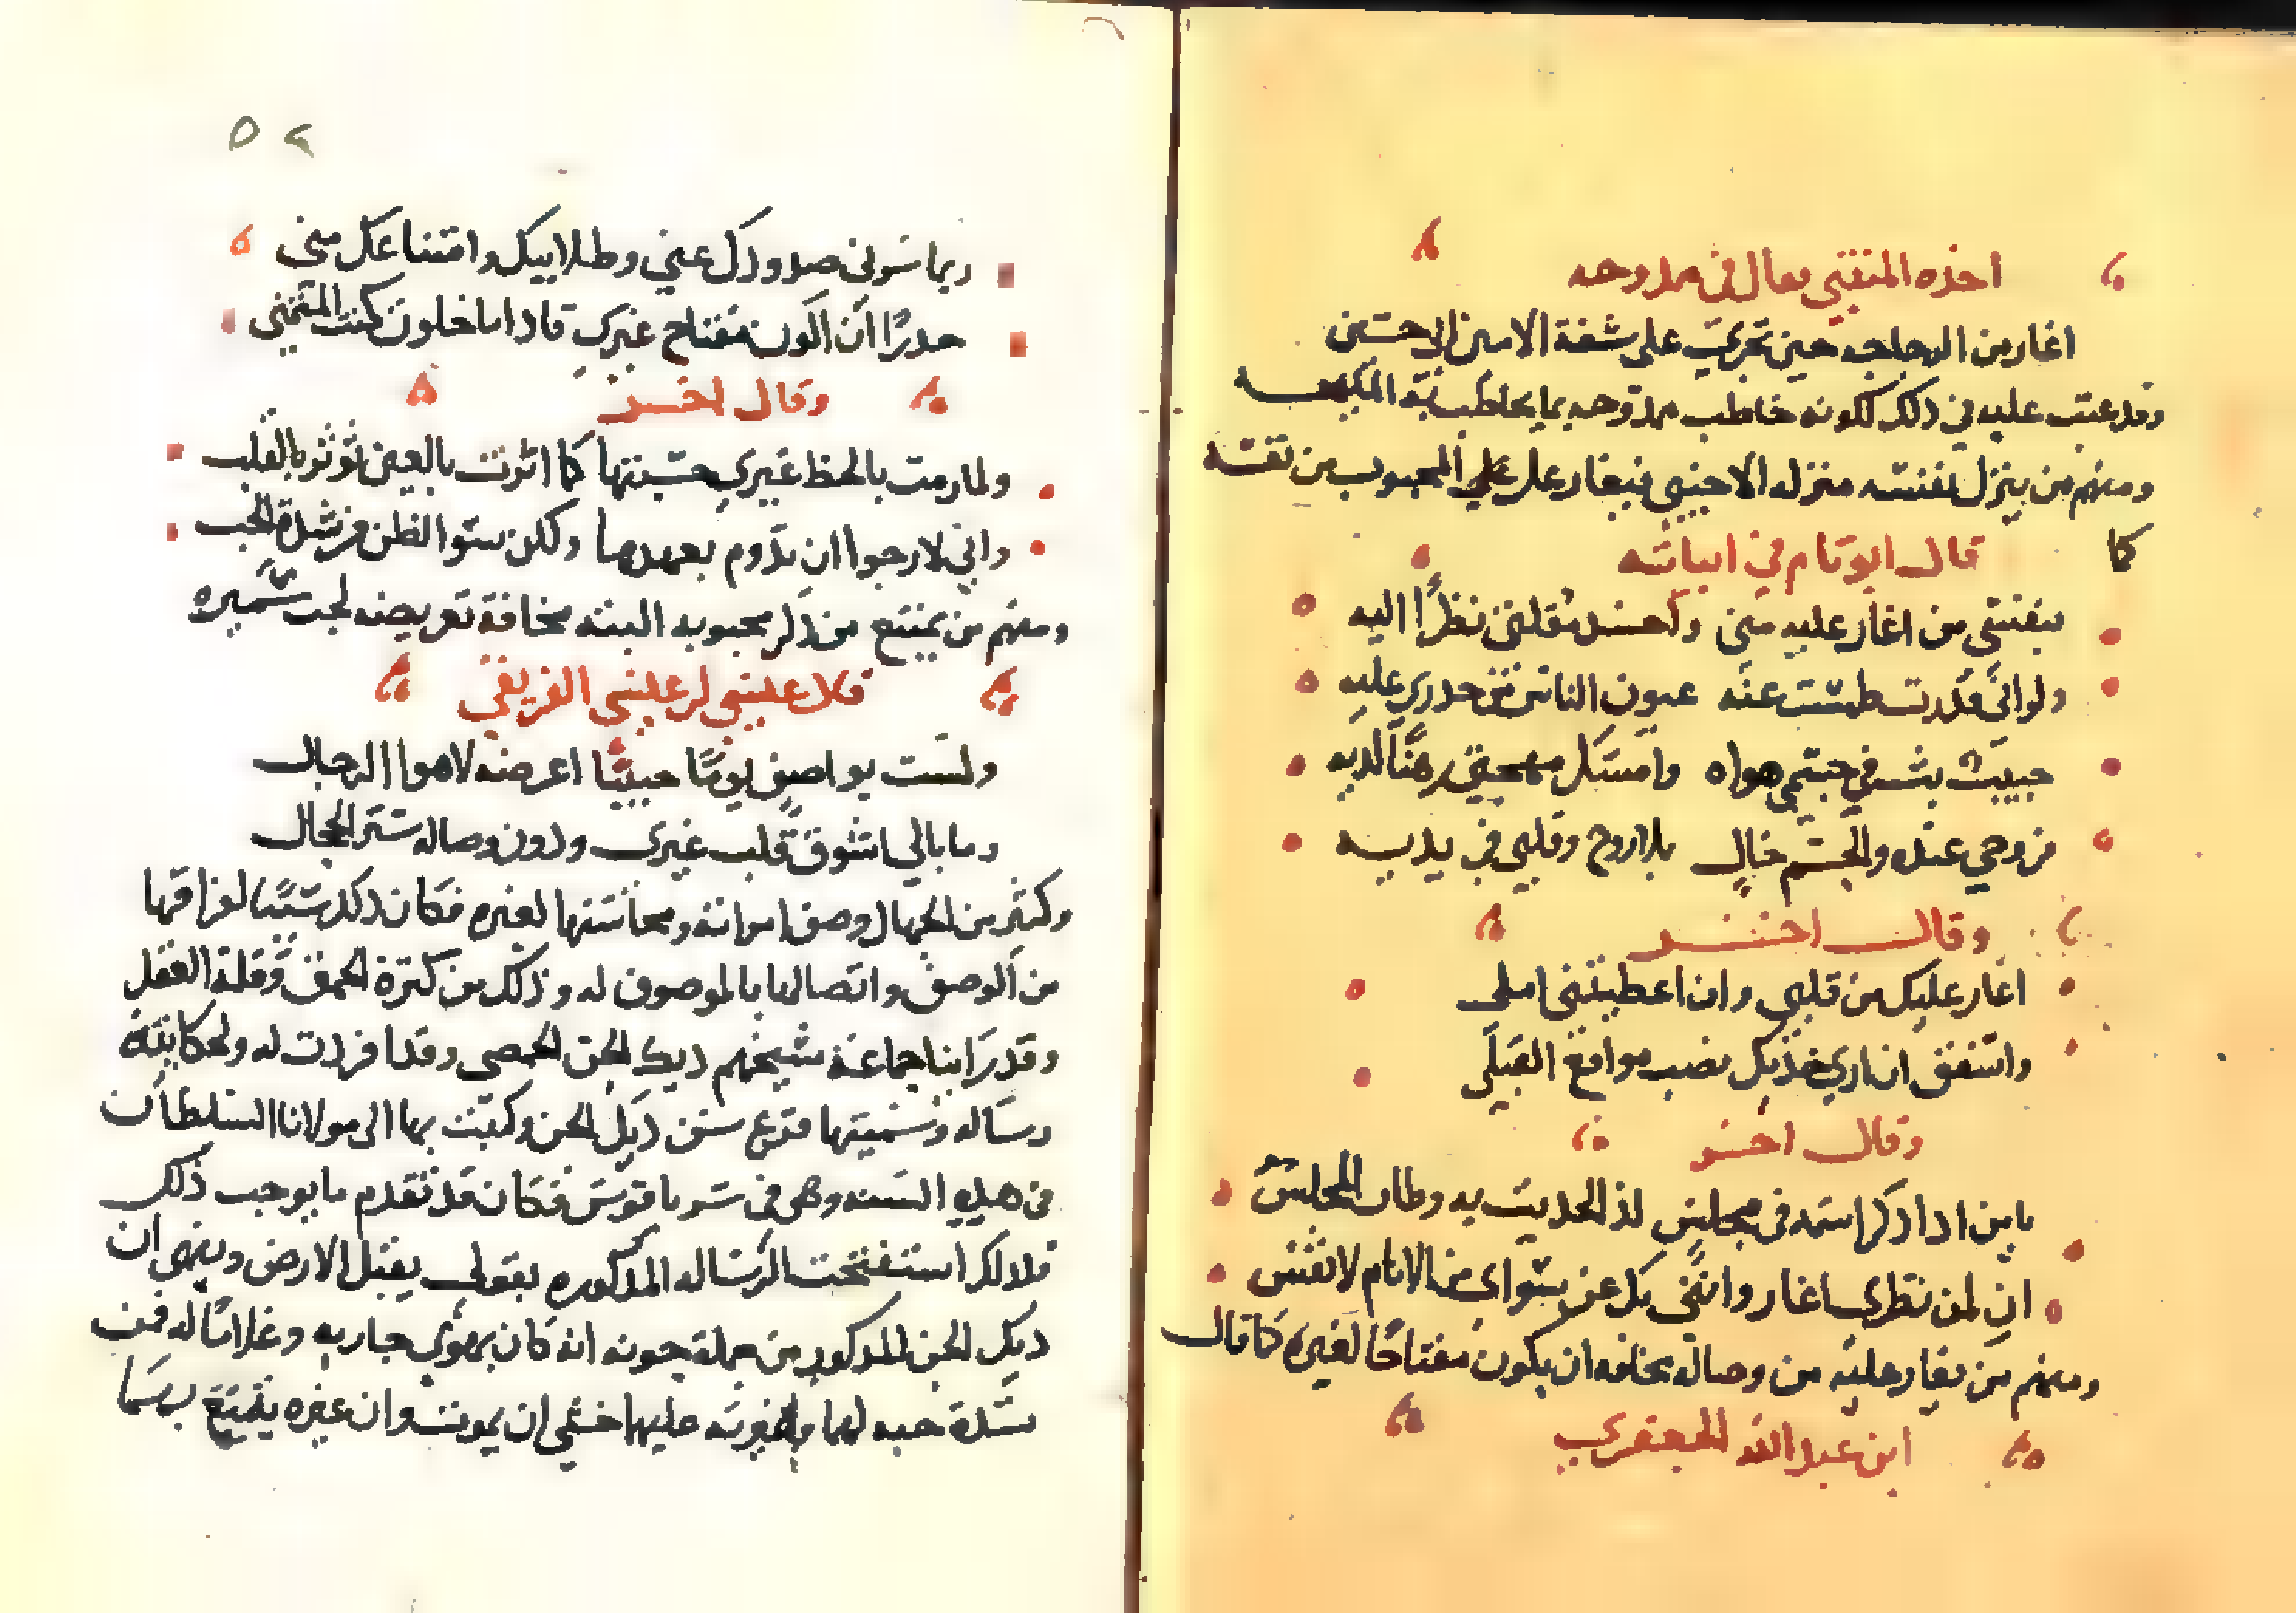 اخذه المتنبي فقال في ممدوحه
اغار من الزجاجه حين تجري على شفة الامير ابي الحسين
وقد عيب عليه في ذلك لكونه خاطب ممدوحه بما يخاطب به
ومنهم من ينزل نفسه منزله الاجنبي فيغار على المحبوب من نفسه
كما قال ابو تمام في ابياته
بنفسي من اغار عليه مني واحسد مقلتي نظرًا اليه
ولو اني قدرت طمست عنه عيون الناس من حذري عليه
حبيب بث في جسمي هواه وامسك مهجتي رهنًا لديه
فروحي عنده والجسم خالٍ بلا روح وقلبي في يديه
وقال اخر
اغار عليك من قلبي وان اعطيتني املي
واشفق ان اري خديك نصب مواقع القبل
وقال اخر
يا من اذا ذكر اسمه في مجلس لذ الحديث به وطاب المجلس
اني لمن نظري اغار وانني بك عن سواي من الانام لا نفس
ومنهم من يغار عليه من وصاله مخافه ان يكون مفتاحًا لغيره كما قال
ابن عبد الله الجعفري
٥٢
ربما سرني صدودك عني وطلابيك وامتناعك مني
حذرًا ان اكون مفتاح غيري فاذا ما خلوت كنت التمني
وقال اخر
ولما رمت باللحظ غيري حسبتها كما اثرت بالعين تؤثر بالقلب
واني لارجوا ان تدوم بعهدها ولكن سؤ الظن من شدة الحب
ومنهم من يمتنع من ذكر محبوبه البته مخافة تعريضه لحب
علي بن عيسى الرافقي
ولست بواصف يومًا حبيبًا اعرضه لاهوا الرجال
وما بالي اشوق قلب غيري ودون وصاله ستر الحجال
وكثير من الجهال وصف امراته ومحاسنها لغيره فكان ذلك سببًا لفراقها
من الوصف واتصالها بالموصوف له وذلك من كثرة الحمق وقلة العقل
وقد راينا جماعة شيخهم ديك الجن الحمصي وقد افردت له ولحكايته
رساله وسميتها قرع سن ديك الجن وكتبت بها الى مولانا السلطان
في هذه السنه وهي في سرياقوس فكان قد تقدم ما يوجب ذلك
فلذلك استفتحت الرساله المذكوره بقولي يقبل الارض وينهي ان
ديك الجن المذكور من جملة جنونه انه كان يهوى جاريه وغلامًا له فمن
شدة حبه لهما وغيرته عليهما خشي ان يموت وان غيره يتمتع بهما